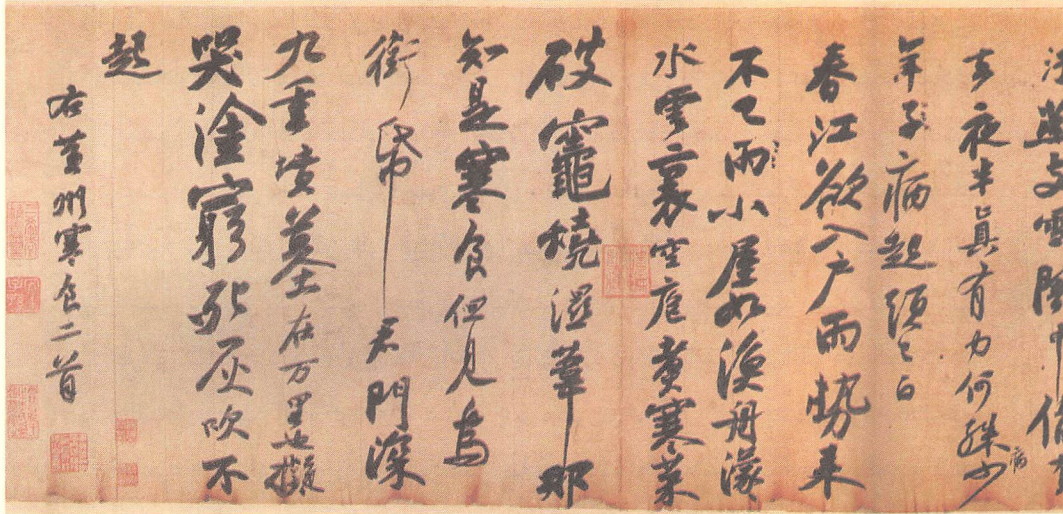 燕支雪闇中偷
去夜半真有力何殊病少
年子病起頭已白
春江欲入戶雨勢來
不已雨小屋如漁舟濛〻
水雲裏空庖煮寒菜
破竈燒濕葦那
知是寒食但見烏
銜帋君門深
九重墳墓在万里也擬
哭塗窮死灰吹不
起
右黃州寒食二首